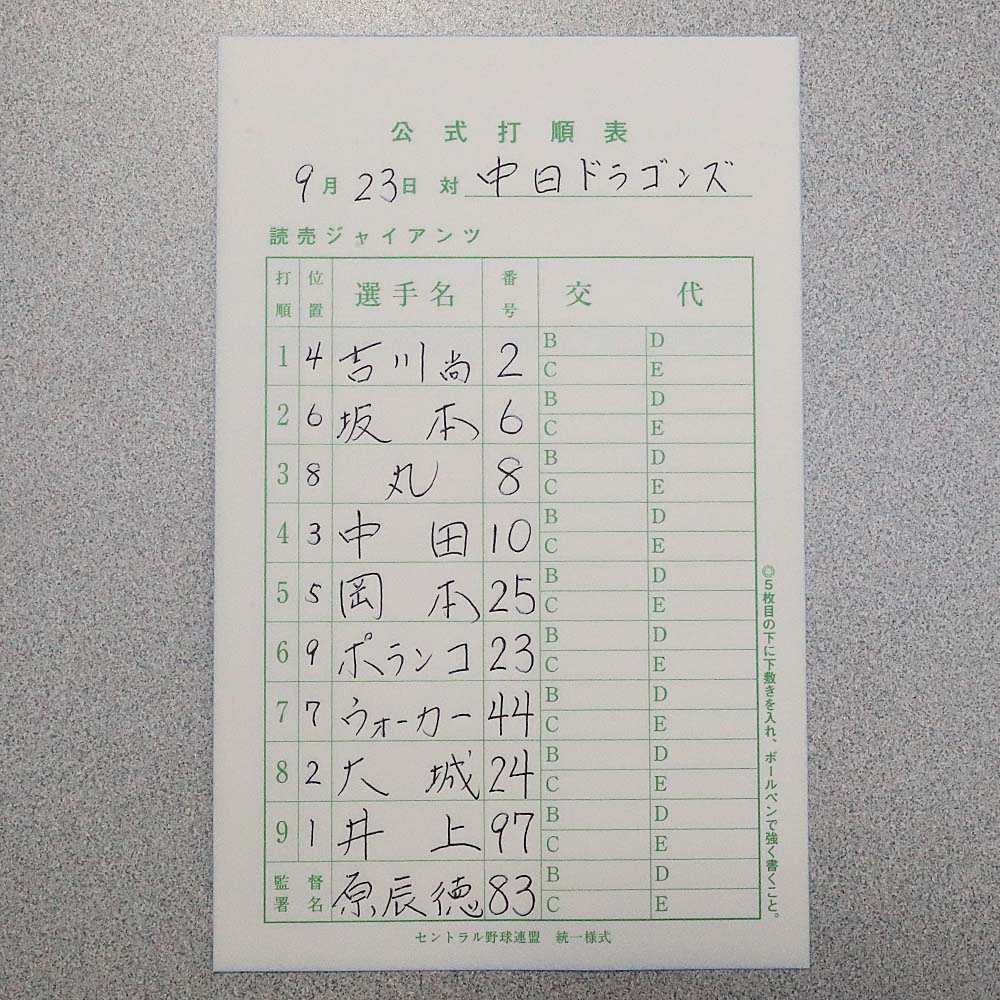 公式打順表
9月23日 対 中日ドラゴンズ
読売ジャイアンツ
打順 位置 選手名 番号 交代
1 4 吉川尚 2 B D C E
2 6 坂本 6 B D C E
3 8 丸 8 B D C E
4 3 中田 10 B D C E
5 5 岡本 25 B D C E
6 9 ポランコ 23 B D C E
7 7 ウォーカー 44 B D C E
8 2 大城 24 B D C E
9 1 井上 97 B D C E
監督署名 原辰徳 83 B D C E
◎5枚目の下に下敷きを入れ、ボールペンで強く書くこと。
セントラル野球連盟 統一様式